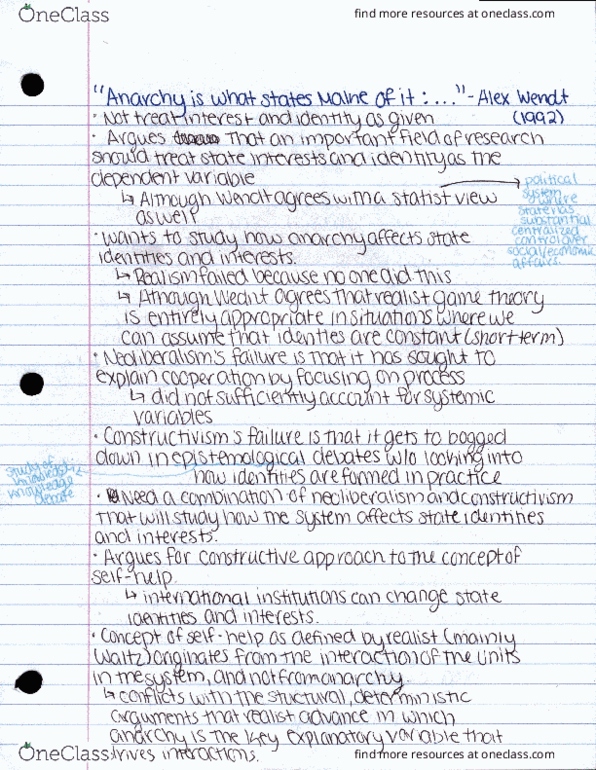 OneClass
find more resources at oneclass.com
"Anarchy is what states make of it : ..." - Alex Wendt
• Not treat interest and identity as given (1992)
• Argues that an important field of research
should treat state interests and identity as the
dependent variable
↳ Although Wendt agrees with a statist view
as well
political
system
where
state has
substantial
centralized
control over
social/economic
affairs.
• wants to study how anarchy affects state
identities and interests.
↳ Realism failed because no one did this
↳ Although Wednt agrees that realist game theory
is entirely appropriate in situations where we
can assume that identies are constant (short term)
• Neoliberalism's failure is that it has sought to
explain cooperation by focusing on process
↳ did not sufficiently account for systemic
variables
• Constructivism's failure is that it gets to bogged
down in epistemological debates w/o looking into
how identities are formed in practice
study of
knowledge
debate
• Need a combination of neoliberalism and constructivism
that will study how the system affects state identities
and interests.
• Argues for constructive approach to the concept of
self-help.
↳ international institutions can change state
identities and interests.
• Concept of self-help as defined by realist (mainly
Waltz) originates from the interaction of the units
in the system, and not from anarchy.
↳ conflicts with the stuctural, deterministic
arguments that realist advance in which
anarchy is the key explanatory variable that
drives interactions.
OneClass
find more resources at oneclass.com